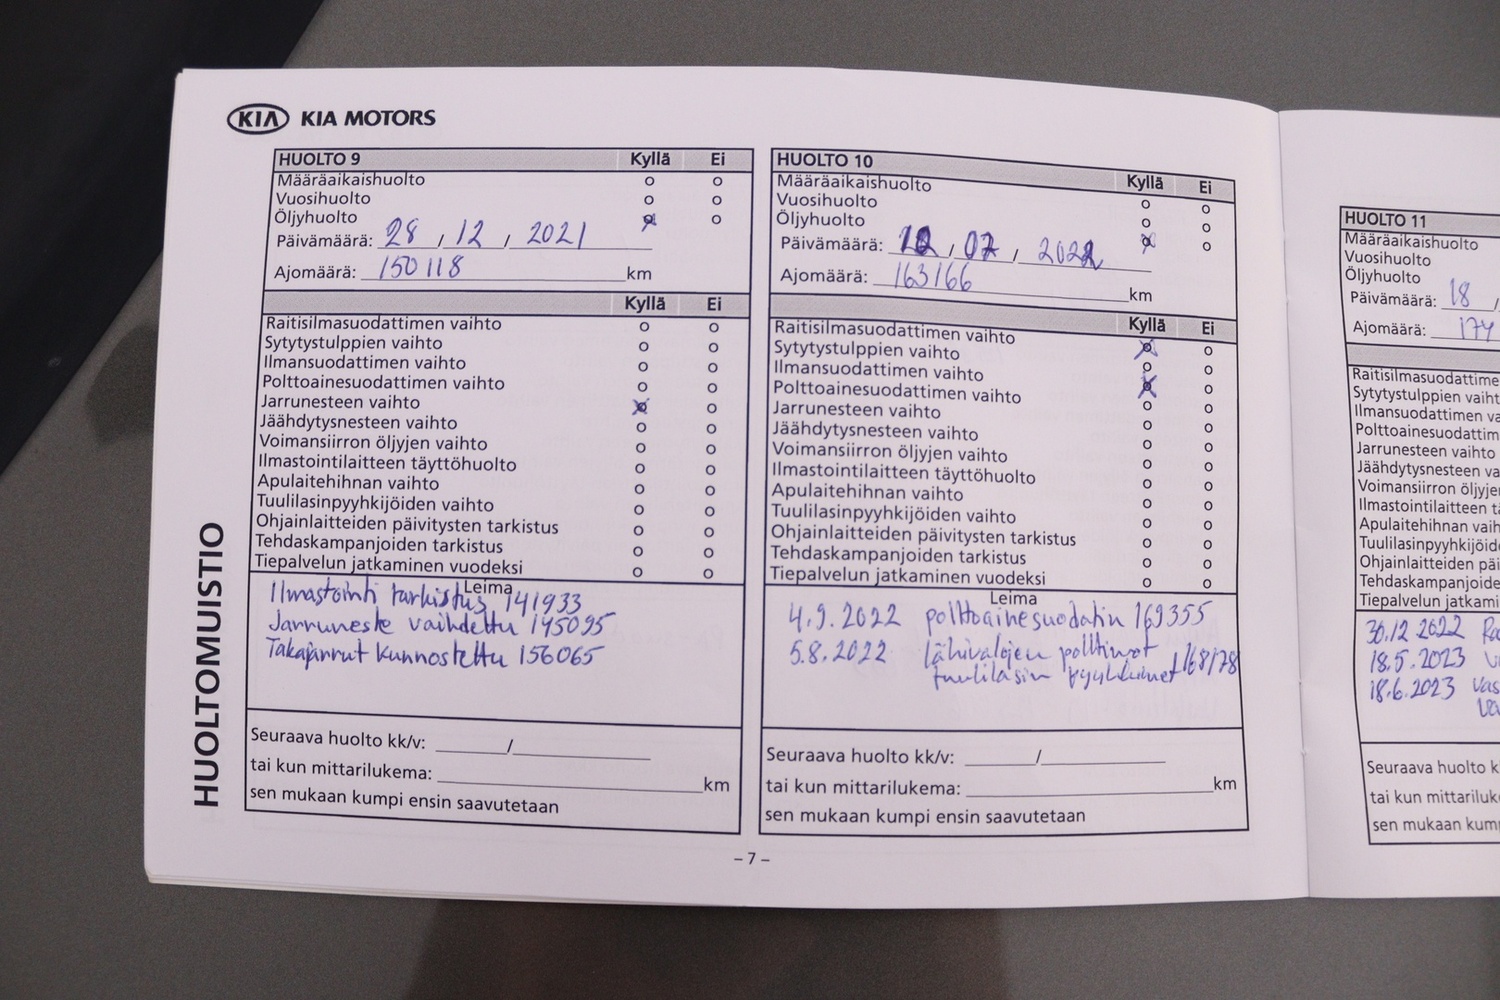 KIA KIA MOTORS
HUOLTO 9 Kyllä Ei
Määräaikaishuolto o o
Vuosihuolto o o
Öljyhuolto x o
Päivämäärä: 28 / 12 / 2021
Ajomäärä: 150118 km
Kyllä Ei
Raitisilmasuodattimen vaihto o o
Sytytystulppien vaihto o o
Ilmansuodattimen vaihto o o
Polttoainesuodattimen vaihto o o
Jarrunesteen vaihto x o
Jäähdytysnesteen vaihto o o
Voimansiirron öljyjen vaihto o o
Ilmastointilaitteen täyttöhuolto o o
Apulaitehihnan vaihto o o
Tuulilasinpyyhkijöiden vaihto o o
Ohjainlaitteiden päivitysten tarkistus o o
Tehdaskampanjoiden tarkistus o o
Tiepalvelun jatkaminen vuodeksi o o
Leima
Ilmastointi tarkistus 141933
Jarruneste vaihdettu 145095
Takajarrut kunnostettu 156065
Seuraava huolto kk/v: /
tai kun mittarilukema: km
sen mukaan kumpi ensin saavutetaan
HUOLTO 10 Kyllä Ei
Määräaikaishuolto o o
Vuosihuolto o o
Öljyhuolto x o
Päivämäärä: 12 / 07 / 2022
Ajomäärä: 163166 km
Kyllä Ei
Raitisilmasuodattimen vaihto x o
Sytytystulppien vaihto o o
Ilmansuodattimen vaihto x o
Polttoainesuodattimen vaihto o o
Jarrunesteen vaihto o o
Jäähdytysnesteen vaihto o o
Voimansiirron öljyjen vaihto o o
Ilmastointilaitteen täyttöhuolto o o
Apulaitehihnan vaihto o o
Tuulilasinpyyhkijöiden vaihto o o
Ohjainlaitteiden päivitysten tarkistus o o
Tehdaskampanjoiden tarkistus o o
Tiepalvelun jatkaminen vuodeksi o o
Leima
4.9.2022 polttoainesuodatin 169355
5.8.2022 lähivalojen polttimot
tuulilasin pyyhkimet 168178
Seuraava huolto kk/v: /
tai kun mittarilukema: km
sen mukaan kumpi ensin saavutetaan
HUOLTOMUISTIO
– 7 –
HUOLTO 11
Määräaikaishuolto
Vuosihuolto
Öljyhuolto
Päivämäärä: 18 /
Ajomäärä: 174
Raitisilmasuodattime
Sytytystulppien vaiht
Ilmansuodattimen va
Polttoainesuodattim
Jarrunesteen vaihto
Jäähdytysnesteen va
Voimansiirron öljyje
Ilmastointilaitteen t
Apulaitehihnan vaih
Tuulilasinpyyhkijöid
Ohjainlaitteiden päi
Tehdaskampanjoide
Tiepalvelun jatkami
30.12 2022 Ra
18.5.2023 V
18.6.2023 Vas
Va
Seuraava huolto k
tai kun mittariluk
sen mukaan kum